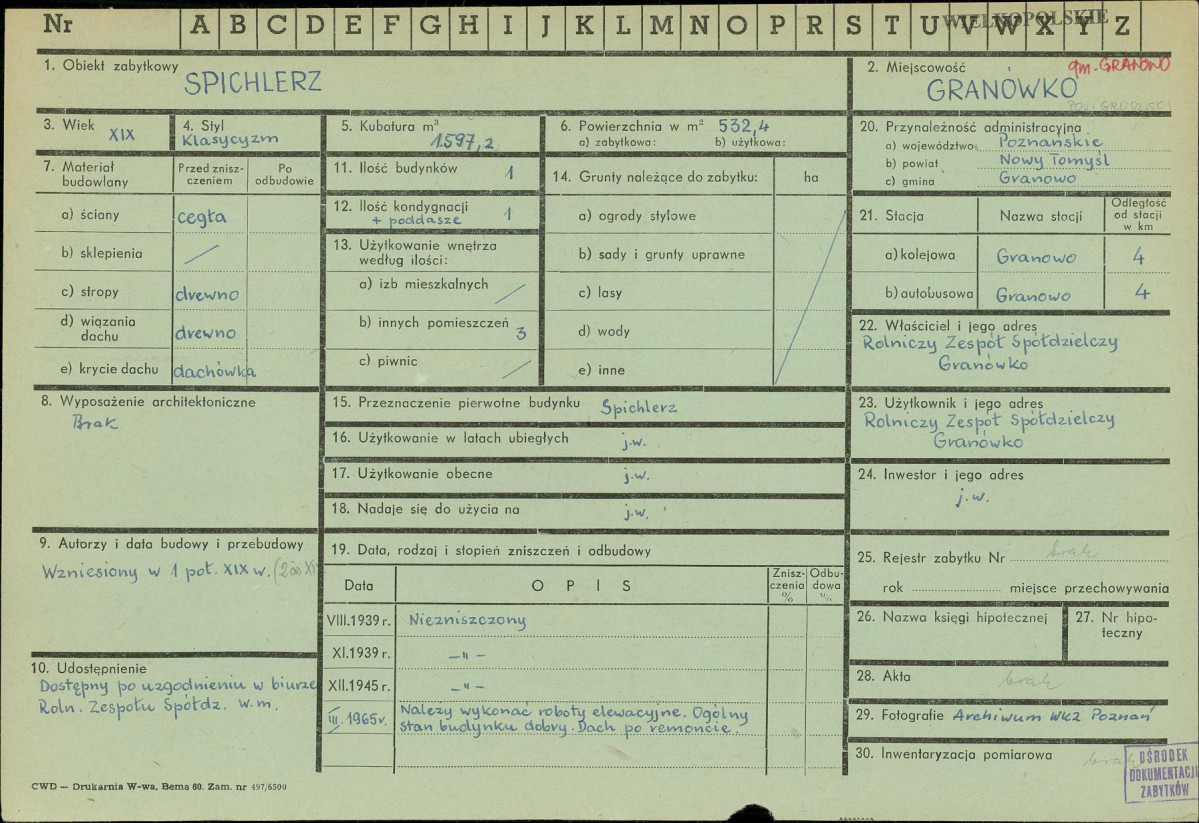 Nr A B C D E F G H I J K L M N O P R S T U V W X Y Z
WIELKOPOLSKIE
1. Obiekt zabytkowy
SPICHLERZ
2. Miejscowość
gm. GRANOWO
GRANÓWKO
POW. GRODZISKI
3. Wiek
XIX
4. Styl
Klasycyzm
5. Kubatura m³
1.597,2
6. Powierzchnia w m² 532,4
a) zabytkowa: b) użytkowa:
7. Materiał budowlany
Przed zniszczeniem
Po odbudowie
a) ściany cegła
b) sklepienia /
c) stropy drewno
d) wiązania dachu drewno
e) krycie dachu dachówka
8. Wyposażenie architektoniczne
Brak
9. Autorzy i data budowy i przebudowy
Wzniesiony w 1 poł. XIX w.
10. Udostępnienie
Dostępny po uzgodnieniu w biurze
Roln. Zespołu Spółdz. w.m.
11. Ilość budynków 1
12. Ilość kondygnacji 1
+ poddasze
13. Użytkowanie wnętrza
według ilości:
a) izb mieszkalnych /
b) innych pomieszczeń 3
c) piwnic /
14. Grunty należące do zabytku: ha
a) ogrody stylowe
b) sady i grunty uprawne
c) lasy
d) wody
e) inne
15. Przeznaczenie pierwotne budynku Spichlerz
16. Użytkowanie w latach ubiegłych j.w.
17. Użytkowanie obecne j.w.
18. Nadaje się do użycia na j.w.
19. Data, rodzaj i stopień zniszczeń i odbudowy
Data OPIS Zniszczenia % Odbudowa %
VIII.1939 r. Niezniszczony
XI.1939 r. –"–
XII.1945 r. –"–
III.1965 r. Należy wykonać roboty elewacyjne. Ogólny
stan budynku dobry. Dach po remoncie.
20. Przynależność administracyjna
a) województwo Poznańskie
b) powiat Nowy Tomyśl
c) gmina Granowo
21. Stacja Nazwa stacji Odległość od stacji w km
a) kolejowa Granowo 4
b) autobusowa Granowo 4
22. Właściciel i jego adres
Rolniczy Zespół Spółdzielczy
Granówko
23. Użytkownik i jego adres
Rolniczy Zespół Spółdzielczy
Granówko
24. Inwestor i jego adres
j.w.
25. Rejestr zabytku Nr brak
rok miejsce przechowywania
26. Nazwa księgi hipotecznej
27. Nr hipoteczny
28. Akta brak
29. Fotografie Archiwum WKZ Poznań
30. Inwentaryzacja pomiarowa brak
OŚRODEK
DOKUMENTACJI
ZABYTKÓW
CWD — Drukarnia W-wa, Bema 60. Zam. nr 497/6500